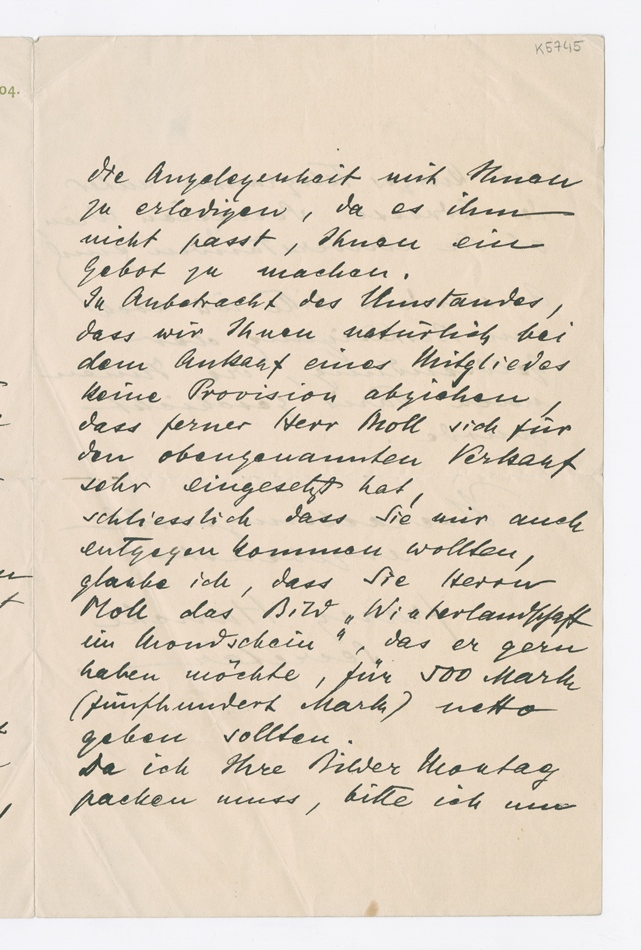 K5745
04.
die Angelegenheit mit Ihnen
zu erledigen, da es ihm
nicht passt, Ihnen ein
Gebot zu machen.
In Anbetracht des Umstandes,
dass wir Ihnen natürlich bei
dem Ankauf eines Mitgliedes
keine Provision abziehen,
dass ferner Herr Moll sich für
den obengenannten Verkauf
sehr eingesetzt hat,
schliesslich dass Sie mir auch
entgegen kommen wollten,
glaube ich, dass Sie Herrn
Moll das Bild „Winterlandschaft
im Mondschein", das er gern
haben möchte, für 500 Mark
(fünfhundert Mark) netto
geben sollten.
Da ich Ihre Bilder Montag
packen muss, bitte ich um